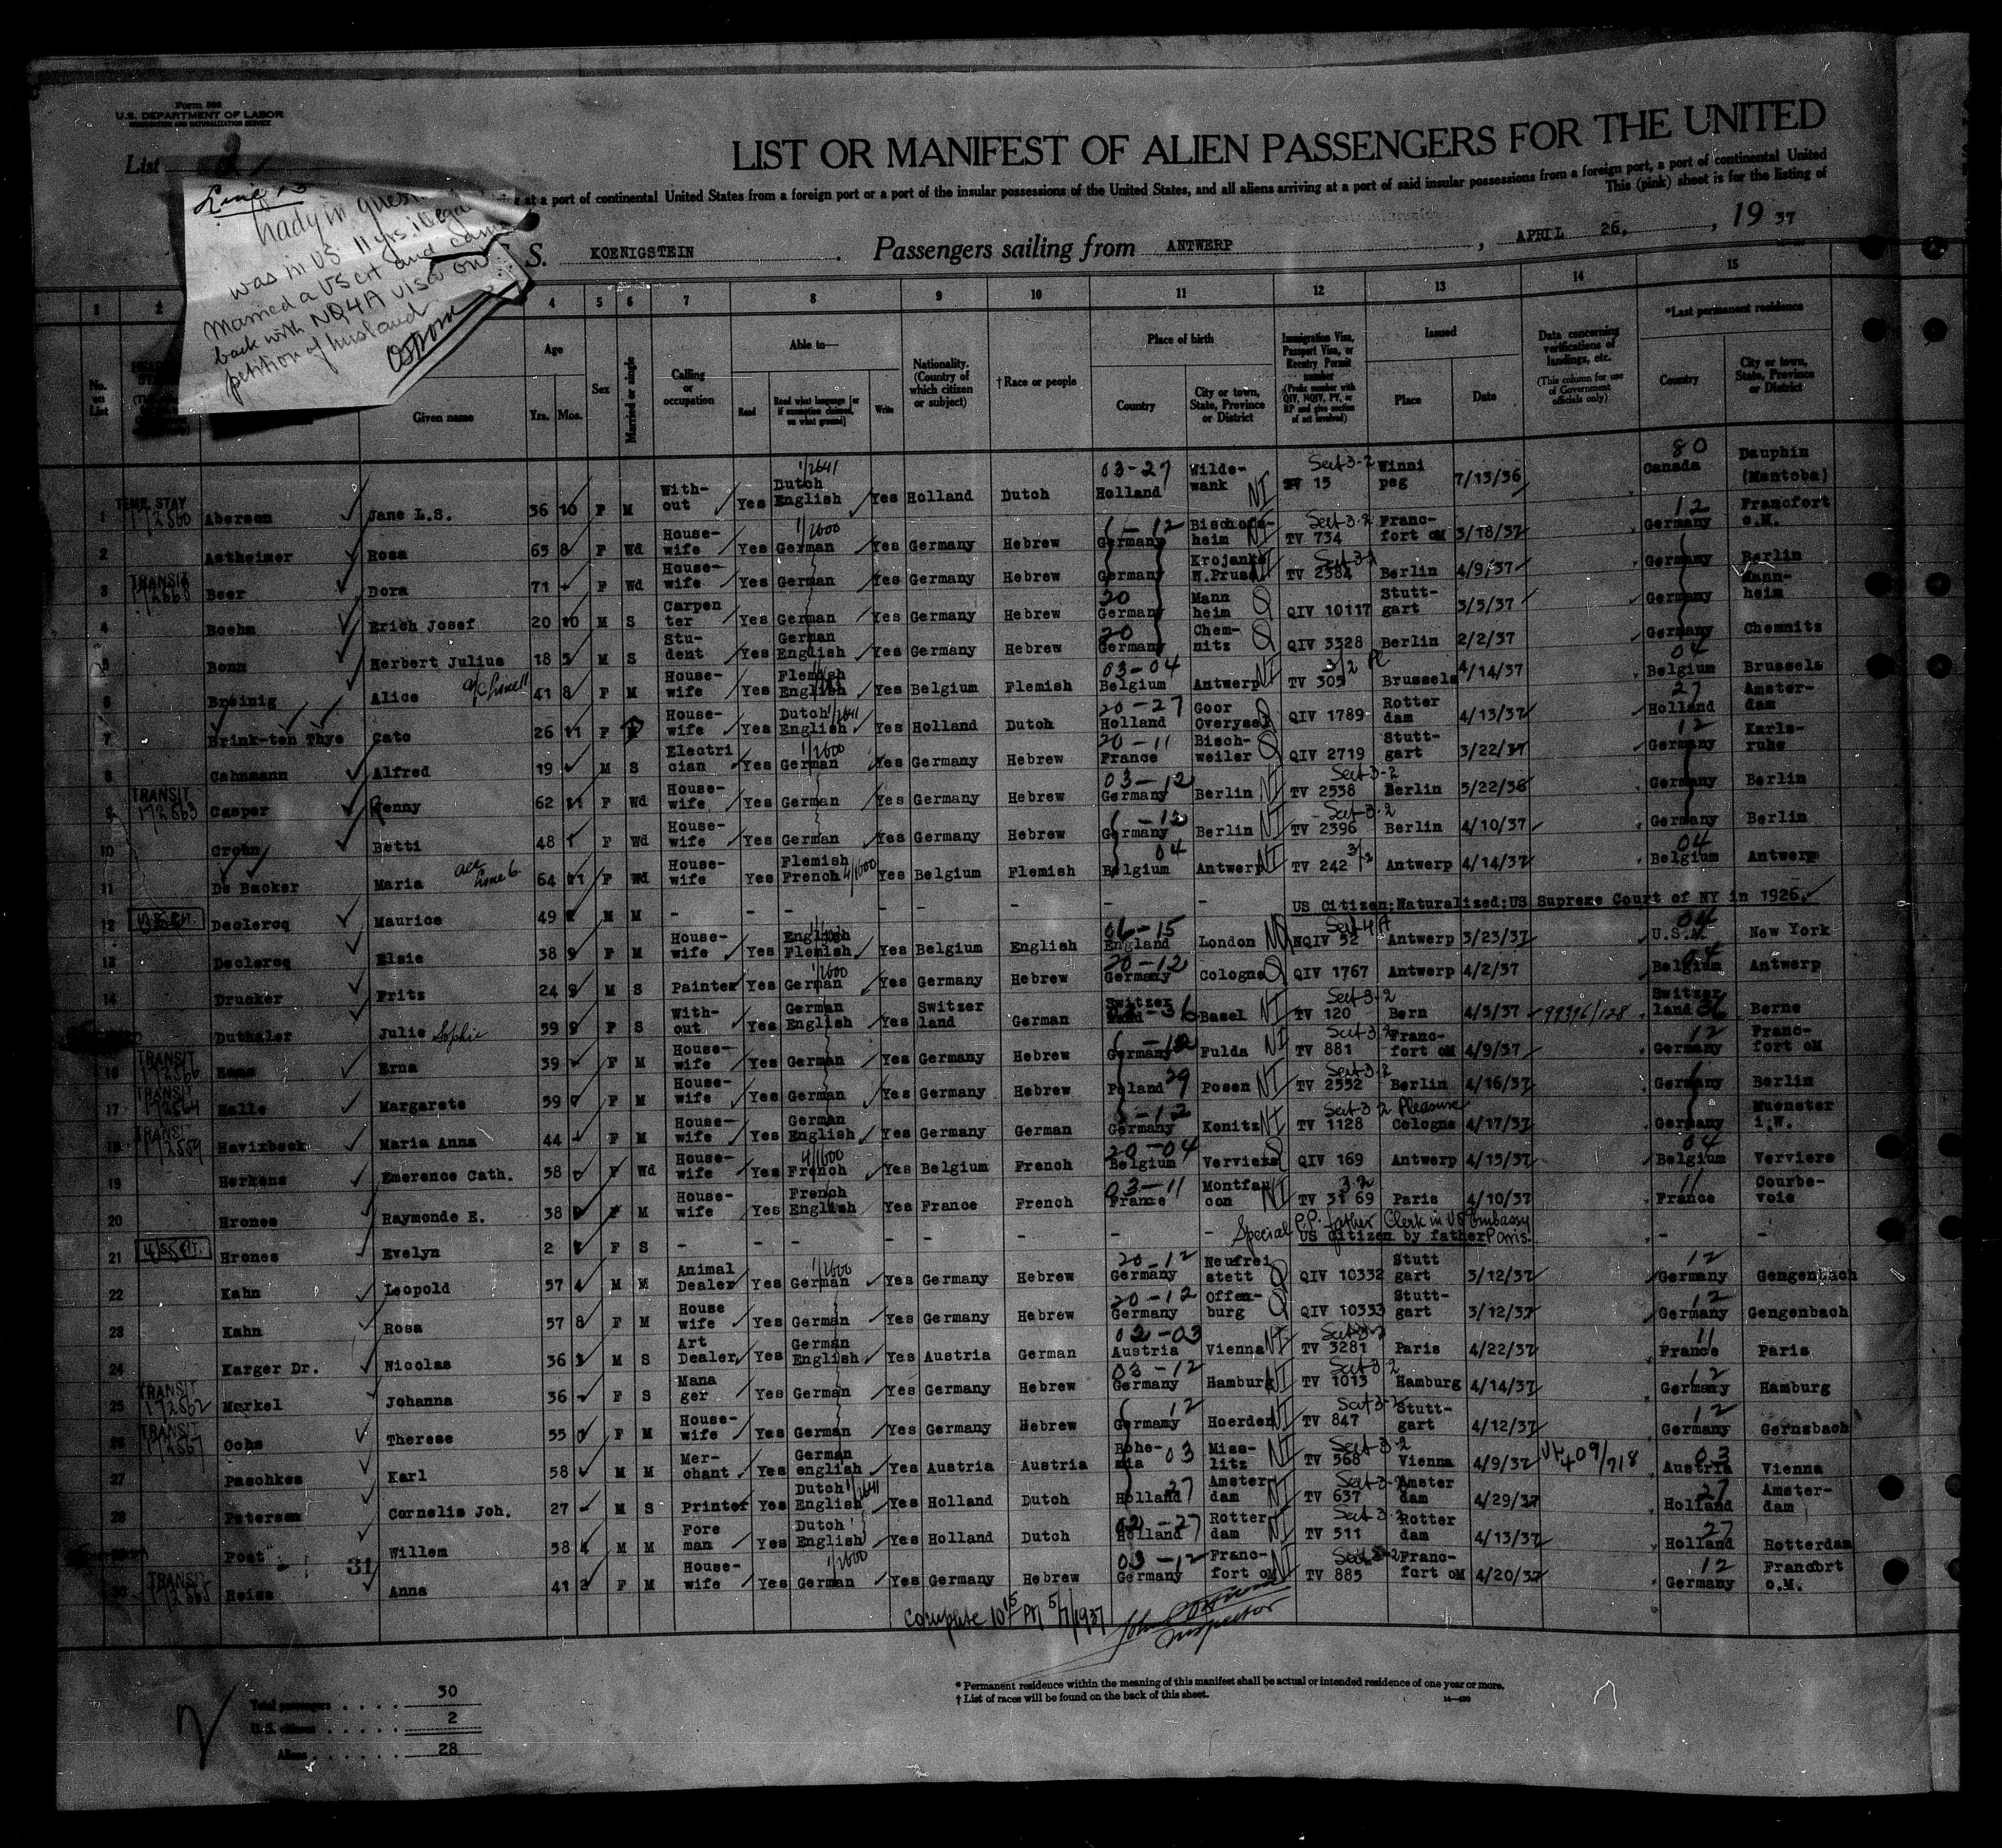 Form 500
U.S. DEPARTMENT OF LABOR
IMMIGRATION AND NATURALIZATION SERVICE
List
LIST OR MANIFEST OF ALIEN PASSENGERS FOR THE UNITED
at a port of continental United States from a foreign port or a port of the insular possessions of the United States, and all aliens arriving at a port of said insular possessions from a foreign port, a port of continental United
This (pink) sheet is for the listing of
Line 13
Lady in
was in US 11 yrs. illegal
Married a US cit and came
back with NQ4A visa on
petition of husband
S. KOENIGSTEIN Passengers sailing from ANTWERP, APRIL 26, 1937
1 2 4 5 6 7 8 9 10 11 12 13 14 15
No. on List
Given name
Age Yrs. Mos.
Sex
Married or single
Calling or occupation
Able to— Read Read what language [or if exemption claimed, on what ground] Write
Nationality. (Country of which citizen or subject)
†Race or people
Place of birth Country City or town, State, Province or District
Immigration Visa, Passport Visa, or Reentry Permit number (Prefix number with QIV, NQIV, PV, or RP and give section of act involved)
Issued Place Date
Data concerning verifications of landings, etc. (This column for use of Government officials only)
*Last permanent residence Country City or town, State, Province or District
1 TEMP. STAY 172860 Aberson Jane L.S. 36 10 F M With-out Yes Dutch English Yes Holland Dutch 03-27 Holland Wilde-wank NI 15 Sect 3-2 Winni peg 7/13/36 80 Canada Dauphin (Mantoba)
2 Astheimer Rosa 65 8 F Wd House-wife Yes German 1/2600 Yes Germany Hebrew Germany Bischofs-heim NI TV 734 Sect 3-2 Franc-fort oM 3/18/37 12 Germany Francfort o.M.
3 TRANSIT Beer Dora 71 F Wd House-wife Yes German Yes Germany Hebrew Germany Krojanke W.Pruss TV 2384 Berlin 4/9/37 Germany Berlin
4 Boehm Erich Josef 20 10 M S Carpen ter Yes German Yes Germany Hebrew 20 Germany Mann heim Q QIV 10117 Stutt-gart 3/5/37 Germany Mann-heim
5 Bonn Herbert Julius 18 5 M S Stu-dent Yes German English Yes Germany Hebrew 20 Germany Chem-nitz Q QIV 3328 Berlin 2/2/37 Germany Chemnitz
6 Breinig Alice 41 8 F M House-wife Yes Flemish English Yes Belgium Flemish 03-04 Belgium Antwerp NI TV 305 3/2 Pl Brussels 4/14/37 04 Belgium Brussels
7 Brink-ten Thye Cato 26 11 F House-wife Yes Dutch English Yes Holland Dutch 20-27 Holland Goor Overysel QIV 1789 Rotter dam 4/13/37 27 Holland Amster-dam
8 Cahnmann Alfred 19 M S Electri cian Yes German 1/2600 Yes Germany Hebrew 20-11 France Bisch-weiler Q QIV 2719 Stutt-gart 3/22/37 12 Germany Karls-ruhe
9 TRANSIT 172863 Casper Jenny 62 11 F Wd House-wife Yes German Yes Germany Hebrew 03-12 Germany Berlin NI TV 2538 Sect 3-2 Berlin 3/22/36 Germany Berlin
10 Crohn Betti 48 F Wd House-wife Yes German Yes Germany Hebrew Germany Berlin NI TV 2396 Sect 3-2 Berlin 4/10/37 Germany Berlin
11 De Backer Maria acc line 6. 64 11 F Wd House-wife Yes Flemish French Yes Belgium Flemish 04 Belgium Antwerp NI TV 242 3/2 Antwerp 4/14/37 04 Belgium Antwerp
12 U.S. CIT. Declercq Maurice 49 M M - - - - - - - - US Citizen:Naturalized:US Supreme Court of NY in 1926.
13 Declercq Elsie 38 9 F M House-wife Yes English Flemish Yes Belgium English 06-15 England London NQ NQIV 52 Sect 4/A Antwerp 3/23/37 U.S.A. New York
14 Drucker Fritz 24 9 M S Painter Yes German 1/2600 Yes Germany Hebrew 20-12 Germany Cologne Q QIV 1767 Antwerp 4/2/37 04 Belgium Antwerp
Duthaler Julie Sophie 59 9 F S With-out Yes German English Yes Switzer land German Switzer land Basel NI TV 120 Sect 3-2 Bern 4/3/37 Switzer land 36 Berne
16 TRANSIT 172866 Haas Erna 39 F M House-wife Yes German Yes Germany Hebrew Germany Fulda NI TV 881 Sect 3-2 Franc-fort oM 4/9/37 12 Germany Franc-fort oM
17 TRANSIT 172864 Halle Margarete 59 F M House-wife Yes German Yes Germany Hebrew Poland 29 Posen NI TV 2552 Sect 3-2 Berlin 4/16/37 Germany Berlin
18 TRANSIT 172859 Havixbeck Maria Anna 44 F M House-wife Yes German English Yes Germany German Germany Konitz NI TV 1128 Sect 3-2 Pleasure Cologne 4/17/37 Germany Muenster i.W.
19 Herkens Emerence Cath. 58 F Wd House-wife Yes French 4/1600 Yes Belgium French 20-04 Belgium Verviers Q QIV 169 Antwerp 4/15/37 04 Belgium Verviers
20 Hrones Raymonde E. 38 F M House-wife Yes French English Yes France French 03-11 France Montfau con NI TV 3169 3-2 Paris 4/10/37 11 France Courbe-voie
21 U.S. CIT. Hrones Evelyn 2 F S - - - - - - - - Special P.P. father Clerk in US Embassy Paris. US citizen by father - -
22 Kahn Leopold 57 4 M M Animal Dealer Yes German 1/2600 Yes Germany Hebrew 20-12 Germany Neufrei stett Q QIV 10332 Stutt gart 3/12/37 12 Germany Gengenbach
23 Kahn Rosa 57 8 F M House wife Yes German Yes Germany Hebrew 20-12 Germany Offen-burg Q QIV 10333 Stutt-gart 3/12/37 12 Germany Gengenbach
24 Karger Dr. Nicolas 36 3 M S Art Dealer Yes German English Yes Austria German 02-03 Austria Vienna NI TV 3281 Sect 3-2 Paris 4/22/37 11 France Paris
25 TRANSIT 172862 Merkel Johanna 36 F S Mana ger Yes German Yes Germany Hebrew 03-12 Germany Hamburg NI TV 1013 Sect 3-2 Hamburg 4/14/37 12 Germany Hamburg
TRANSIT 172867 Ochs Therese 55 F M House-wife Yes German Yes Germany Hebrew 12 Germany Hoerden NI TV 847 Sect 3-2 Stutt-gart 4/12/37 12 Germany Gernsbach
27 Paschkes Karl 58 M M Mer-chant Yes German english Yes Austria Austria Bohe-mia 03 Miss-litz NI TV 568 Sect 3-2 Vienna 4/9/37 03 Austria Vienna
28 Petersen Cornelis Joh. 27 M S Printer Yes Dutch English Yes Holland Dutch Holland 27 Amster dam NI TV 637 Sect 3-2 Amster dam 4/29/37 27 Holland Amster-dam
Post 31 Willem 58 4 M M Fore man Yes Dutch English Yes Holland Dutch 02-27 Holland Rotter dam NI TV 511 Sect 3-2 Rotter dam 4/13/37 27 Holland Rotterdam
TRANSIT 172865 Reiss Anna 41 2 F M House-wife Yes German 1/2600 Yes Germany Hebrew 03-12 Germany Franc-fort oM NI TV 885 Sect 3-2 Franc-fort oM 4/20/37 12 Germany Francfort o.M.
Complete 10 15 PM 5/7/1937 John
Inspector
* Permanent residence within the meaning of this manifest shall be actual or intended residence of one year or more.
† List of races will be found on the back of this sheet.
Total passengers 30
U.S. citizens 2
Aliens 28